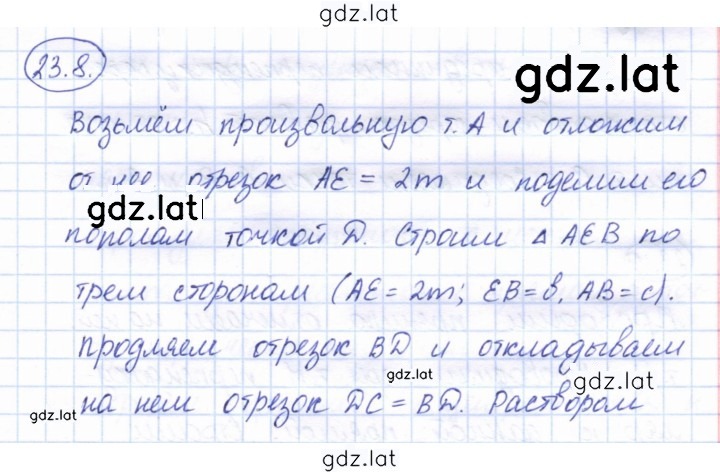 gdz.lat
23.8.
gdz.lat
Возьмём произвольную т. А и отложим
от нее отрезок АЕ = 2m и поделим его
gdz.lat
пополам точкой D. Строим Δ АЕВ по
трем сторонам (АЕ = 2m; ЕВ = в, АВ = с).
продляем отрезок BD и откладываем
gdz.lat
gdz.lat
на нем отрезок DC = BD. Раствором
gdz.lat
gdz.lat